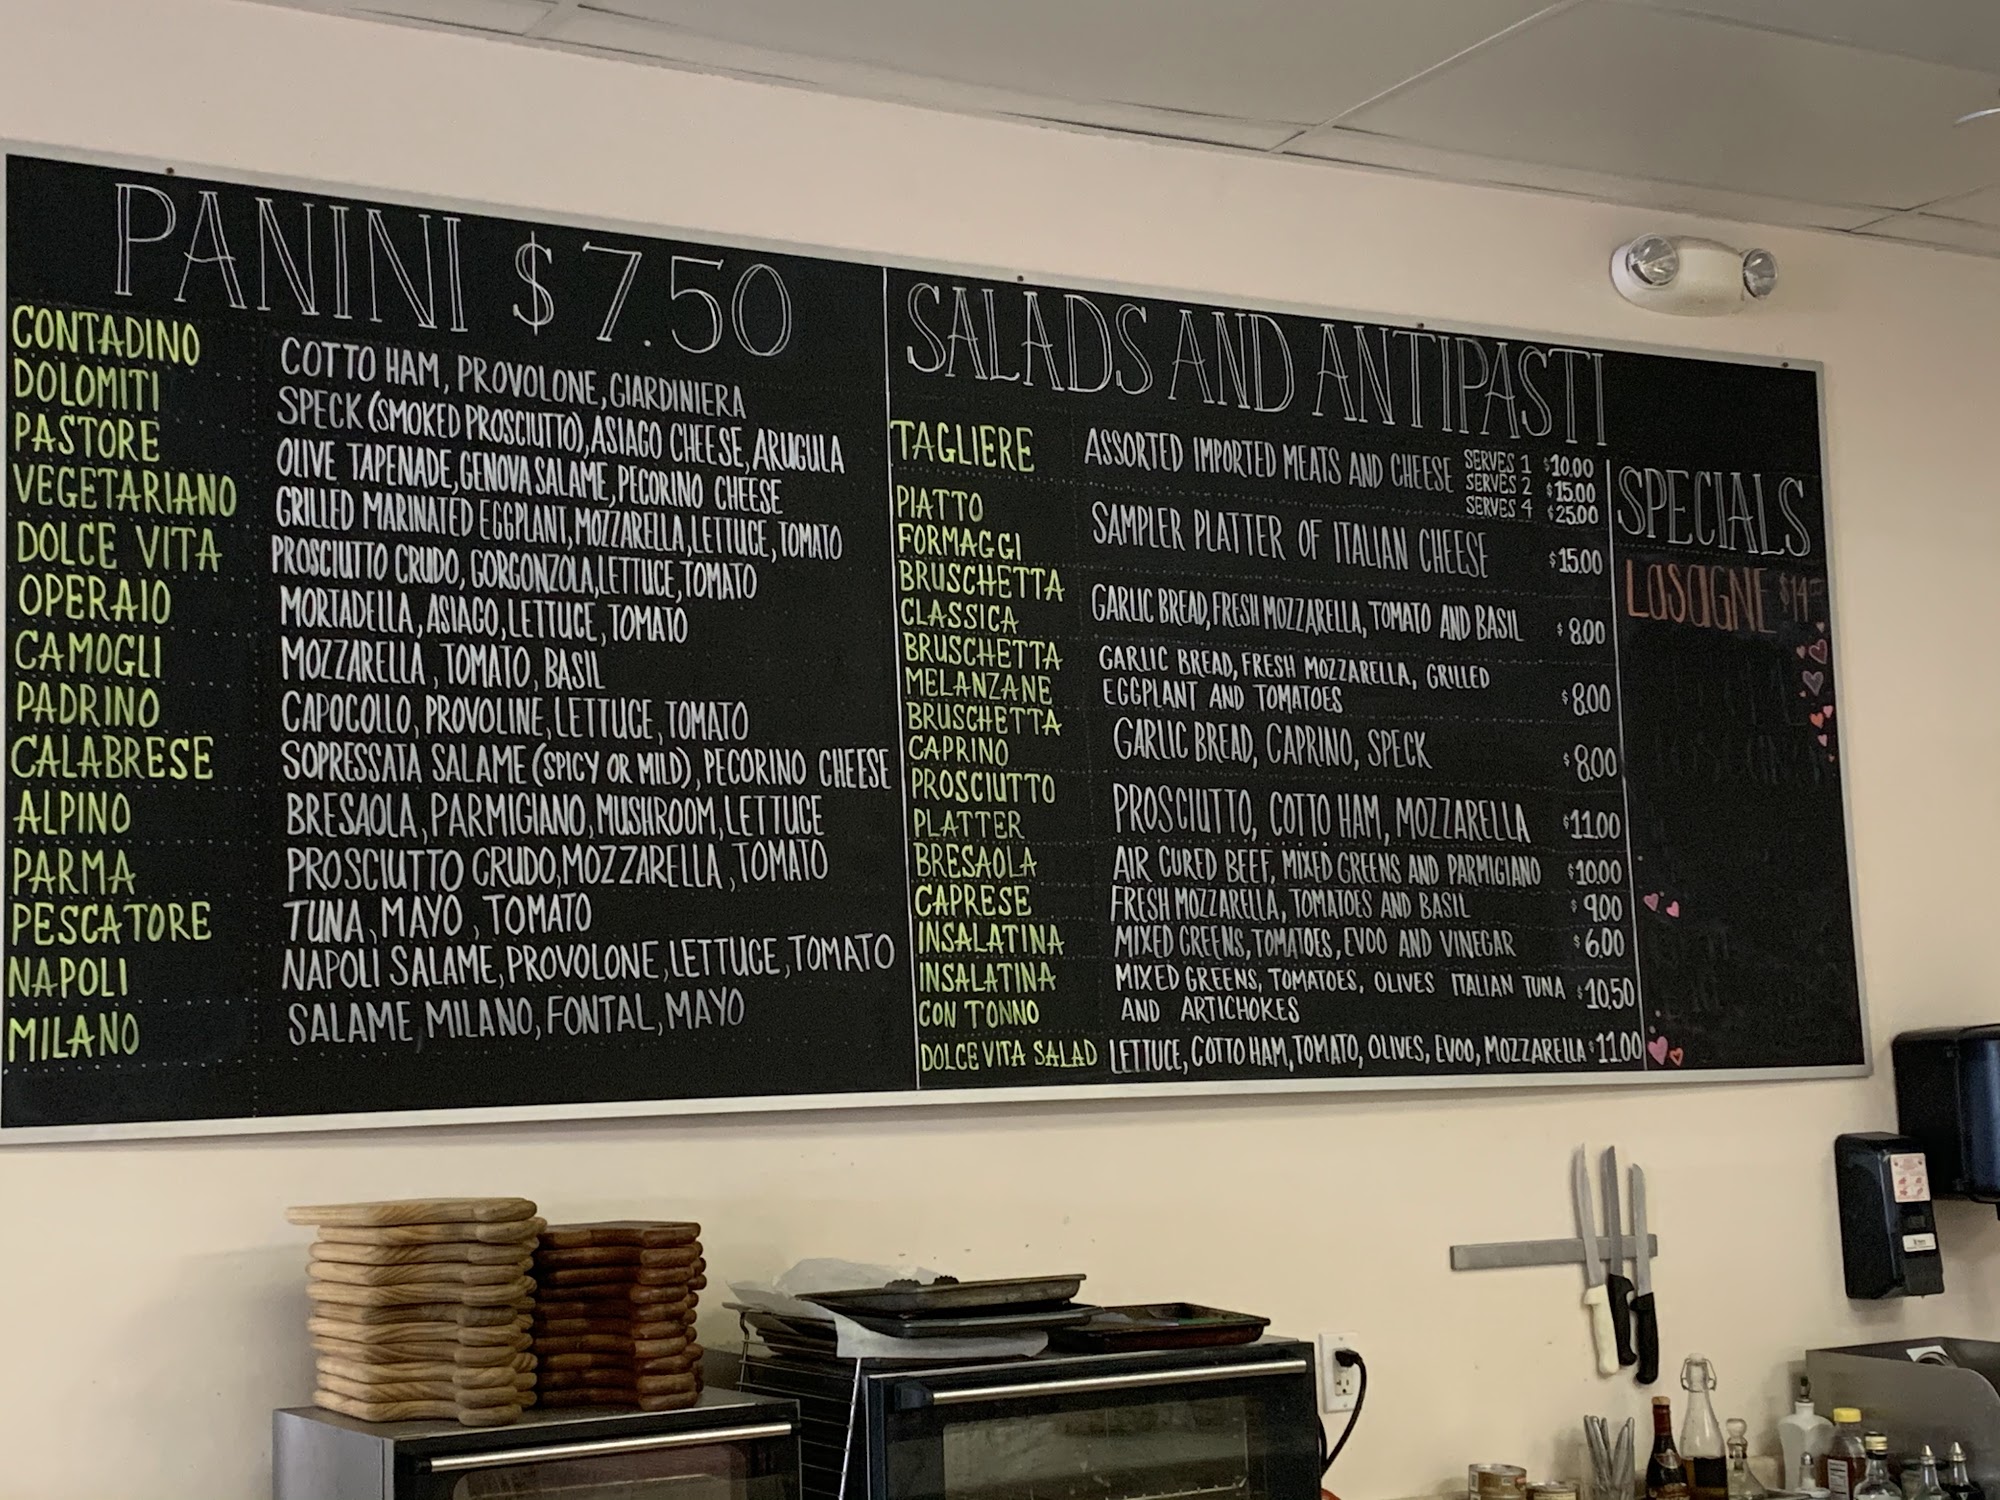 PANINI $7.50
CONTADINO COTTO HAM, PROVOLONE, GIARDINIERA
DOLOMITI SPECK (SMOKED PROSCIUTTO), ASIAGO CHEESE, ARUGULA
PASTORE OLIVE TAPENADE, GENOVA SALAME, PECORINO CHEESE
VEGETARIANO GRILLED MARINATED EGGPLANT, MOZZARELLA, LETTUCE, TOMATO
DOLCE VITA PROSCIUTTO CRUDO, GORGONZOLA, LETTUCE, TOMATO
OPERAIO MORTADELLA, ASIAGO, LETTUCE, TOMATO
CAMOGLI MOZZARELLA, TOMATO, BASIL
PADRINO CAPOCOLLO, PROVOLINE, LETTUCE, TOMATO
CALABRESE SOPRESSATA SALAME (SPICY OR MILD), PECORINO CHEESE
ALPINO BRESAOLA, PARMIGIANO, MUSHROOM, LETTUCE
PARMA PROSCIUTTO CRUDO, MOZZARELLA, TOMATO
PESCATORE TUNA, MAYO, TOMATO
NAPOLI NAPOLI SALAME, PROVOLONE, LETTUCE, TOMATO
MILANO SALAME, MILANO, FONTAL, MAYO
SALADS AND ANTIPASTI
TAGLIERE ASSORTED IMPORTED MEATS AND CHEESE SERVES 1 $10.00
SERVES 2 $15.00
SERVES 4 $25.00
PIATTO
FORMAGGI SAMPLER PLATTER OF ITALIAN CHEESE $15.00
BRUSCHETTA
CLASSICA GARLIC BREAD, FRESH MOZZARELLA, TOMATO AND BASIL $8.00
BRUSCHETTA GARLIC BREAD, FRESH MOZZARELLA, GRILLED
MELANZANE EGGPLANT AND TOMATOES $8.00
BRUSCHETTA
CAPRINO GARLIC BREAD, CAPRINO, SPECK $8.00
PROSCIUTTO
PLATTER PROSCIUTTO, COTTO HAM, MOZZARELLA $11.00
BRESAOLA AIR CURED BEEF, MIXED GREENS AND PARMIGIANO $10.00
CAPRESE FRESH MOZZARELLA, TOMATOES AND BASIL $9.00
INSALATINA MIXED GREENS, TOMATOES, EVOO AND VINEGAR $6.00
INSALATINA MIXED GREENS, TOMATOES, OLIVES ITALIAN TUNA $10.50
CON TONNO AND ARTICHOKES
DOLCE VITA SALAD LETTUCE, COTTO HAM, TOMATO, OLIVES, EVOO, MOZZARELLA $11.00
SPECIALS
LASAGNE $14